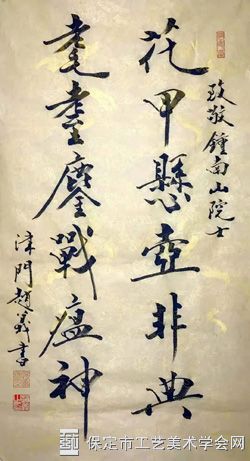 致敬鍾南山院士
花甲懸壺非典
耄耋鏖戰瘟神
津門趙義書
保定市工艺美术学会网